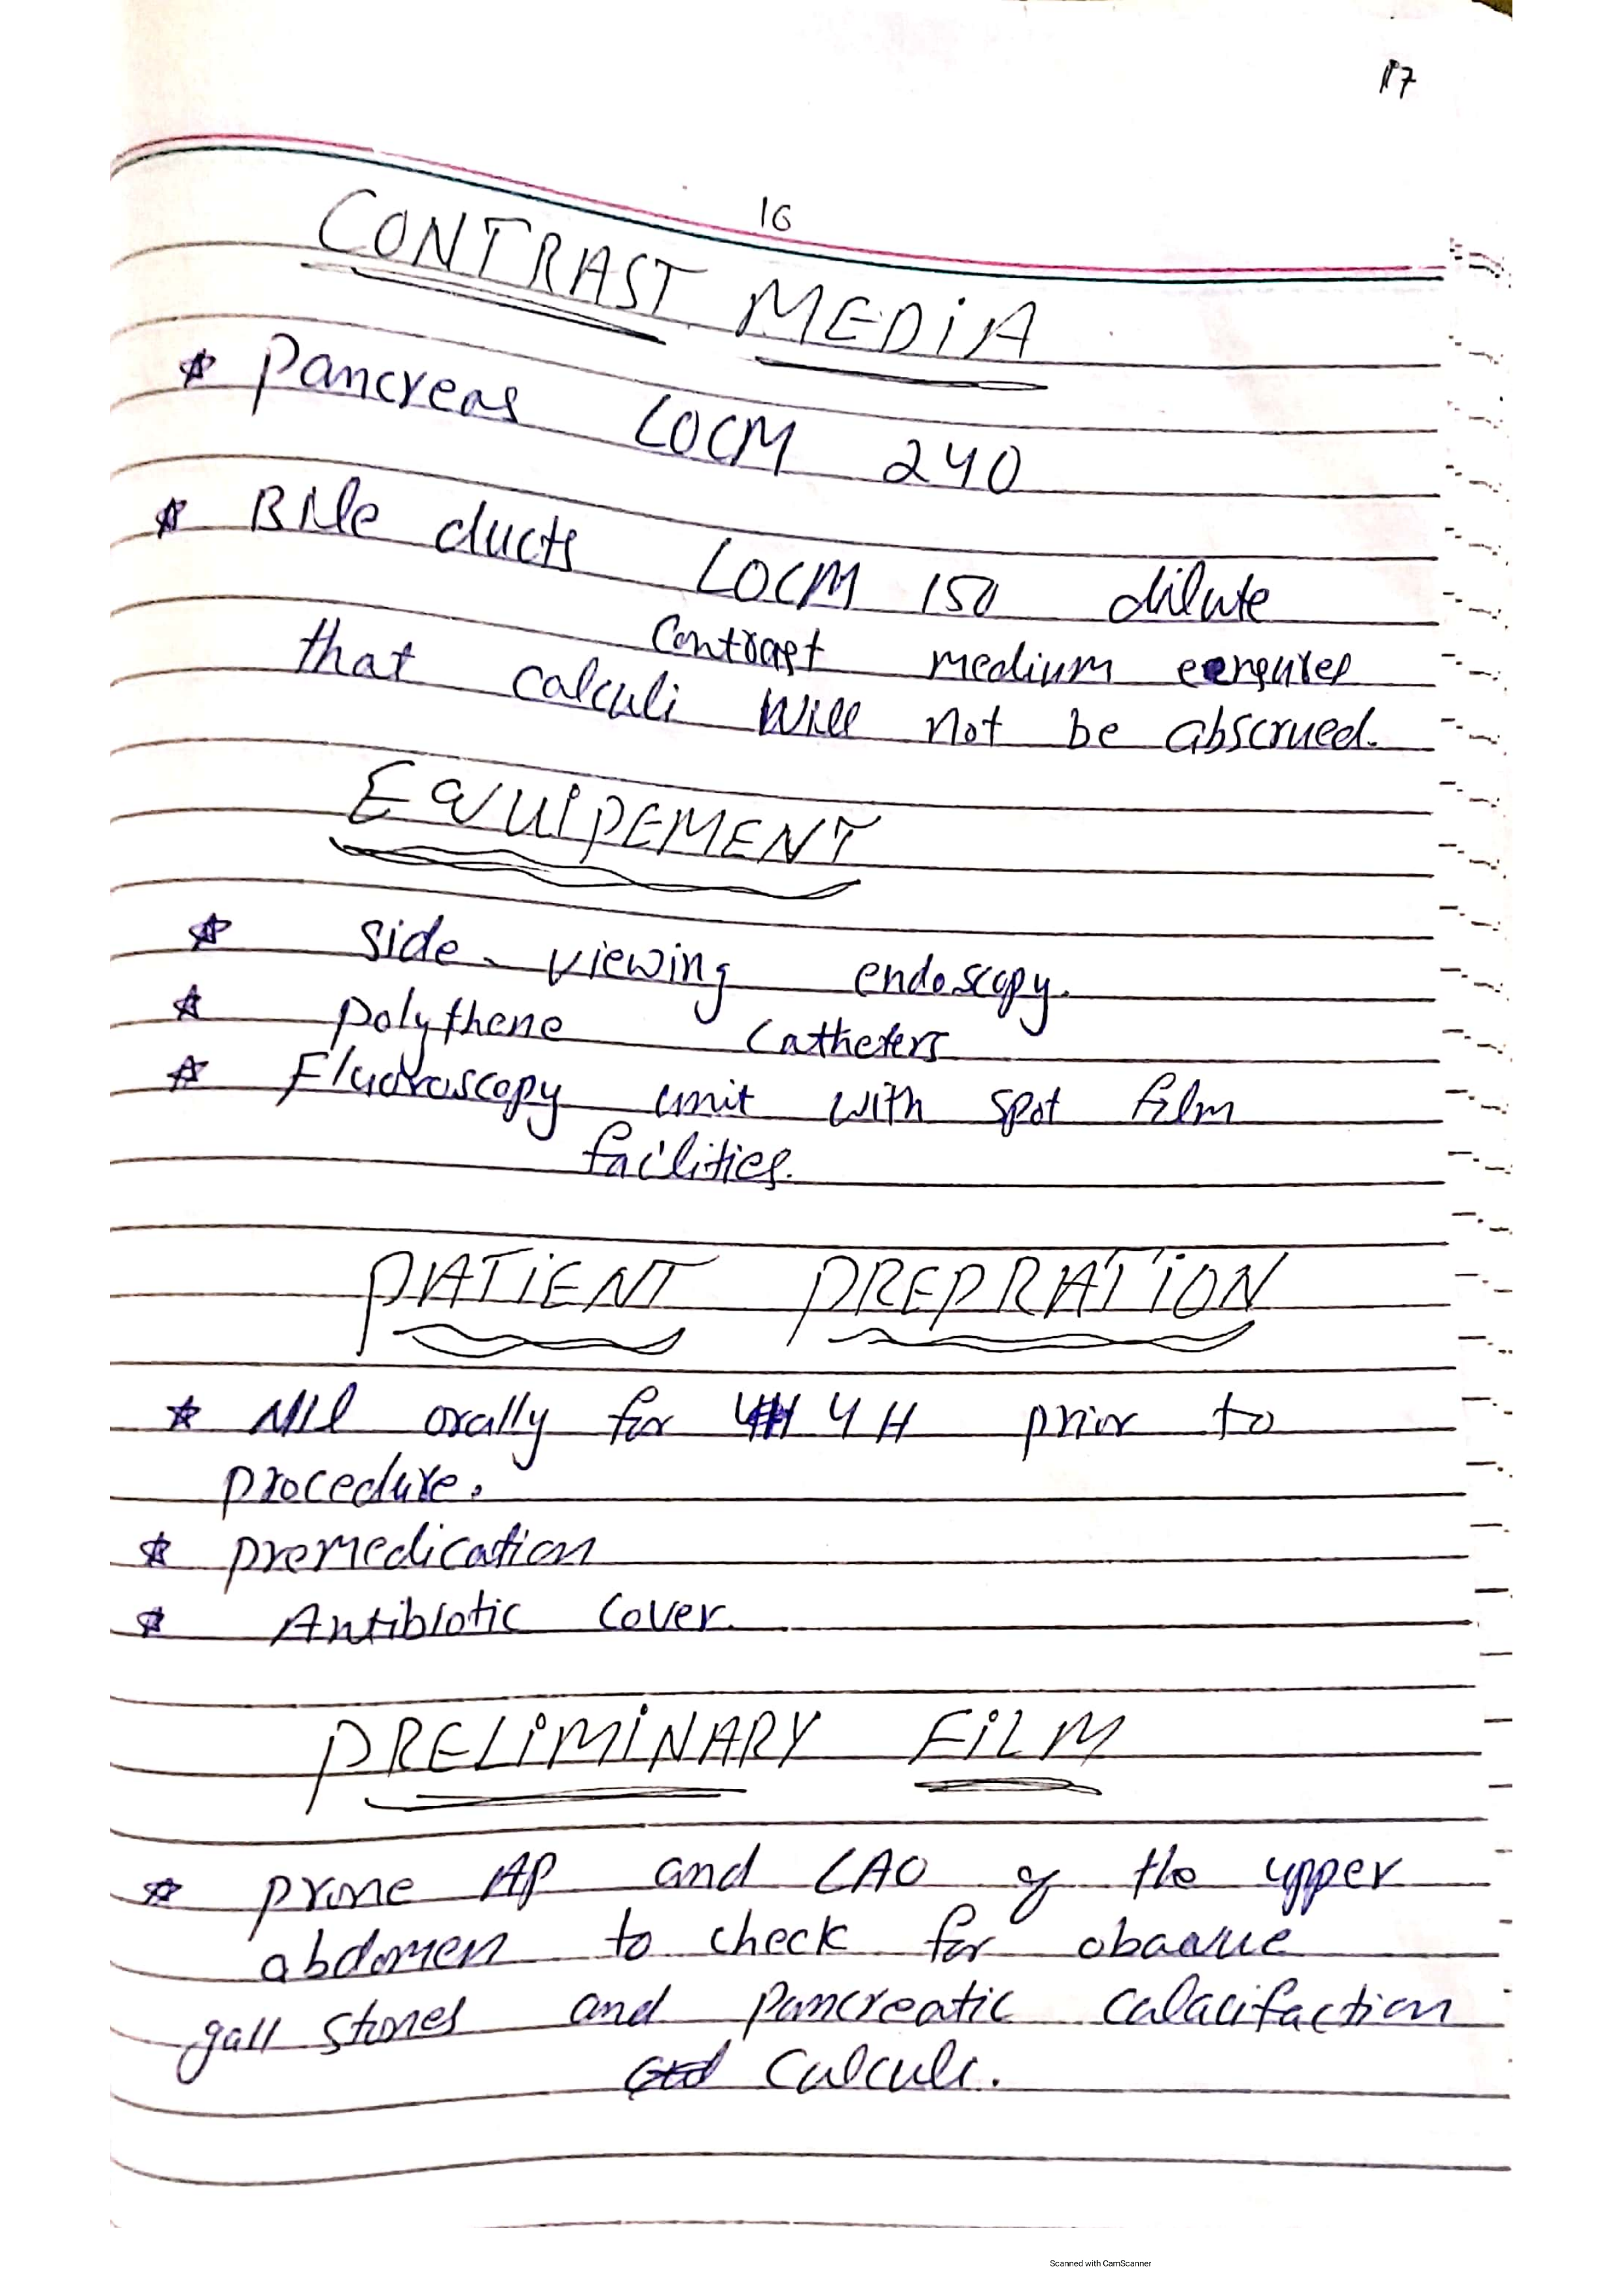 17
16
CONTRAST MEDIA
* Pancreas LOCM 240
* Bile ducts LOCM 150 dilute
Contrast medium
that calculi will not be abscrued.
EQUIPEMENT
* side-viewing endoscopy.
* polythene catheters
* Fluoroscopy unit with spot film
facilities.
PATIENT PREPRATION
* Nil orally for 4H prior to
procedure.
* premedication
* Antibiotic cover.
PRELIMINARY FILM
* prone AP and LAO of the upper
abdomen to check for obaque
gall stones and pancreatic calacifaction
calculi.
Scanned with CamScanner